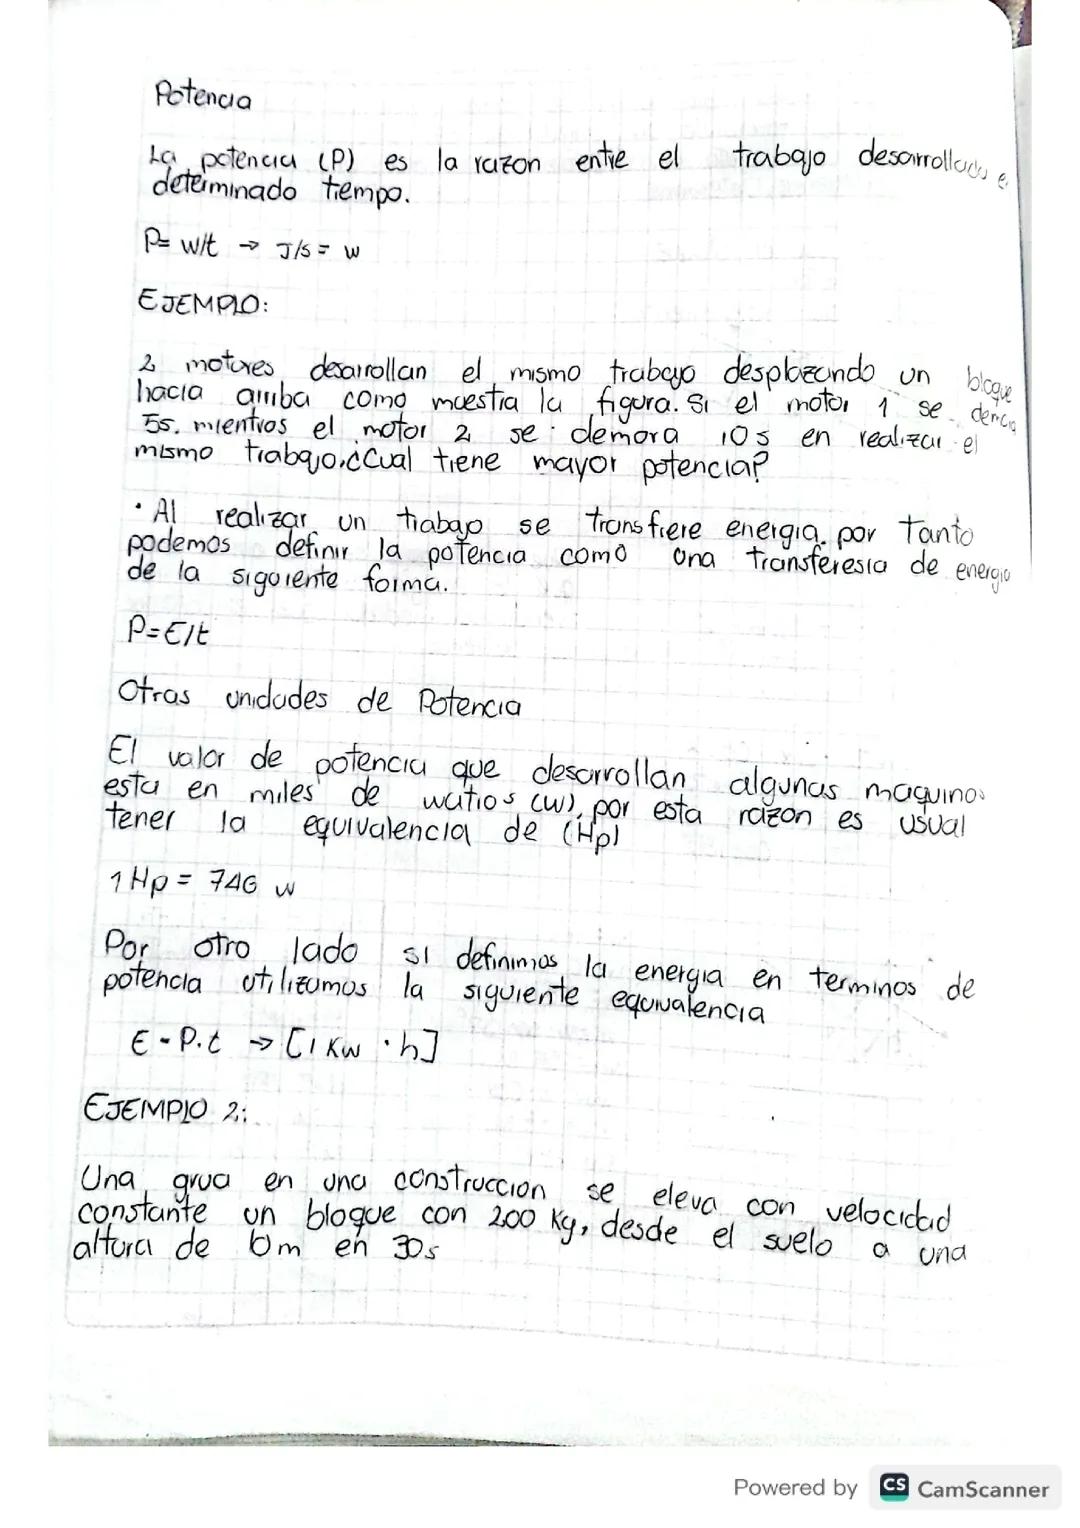 Potencia
La potencia (P) es la razon entre el trabajo desarrollado e
determinado tiempo.
P= w/t → J/s = w
EJEMPLO:
2 motores desarrollan el mismo trabajo desplazando un bloque
hacia arriba como muestra la figura. Si el motor 1 se demora
5s. mientras el motor 2 se demora 10s en realizar el
mismo trabajo. ¿Cual tiene mayor potencia?
• Al realizar un trabajo se transfiere energia. por Tanto
podemos definir la potencia como una transferesia de energia
de la siguiente forma.
P=E/t
Otras unidades de Potencia
El valor de potencia que desarrollan algunas maquinas
esta en miles de watios (w), por esta razon es usual
tener la equivalencia de (Hp)
1 Hp = 746 w
Por otro lado si definimos la energia en terminos de
potencia utilizamos la siguiente equivalencia
E = P.t → [1 Kw · h]
EJEMPLO 2:
Una grua en una construccion se eleva con velocidad
constante un bloque con 200 Kg, desde el suelo a una
altura de 6m en 30s
Powered by CS CamScanner